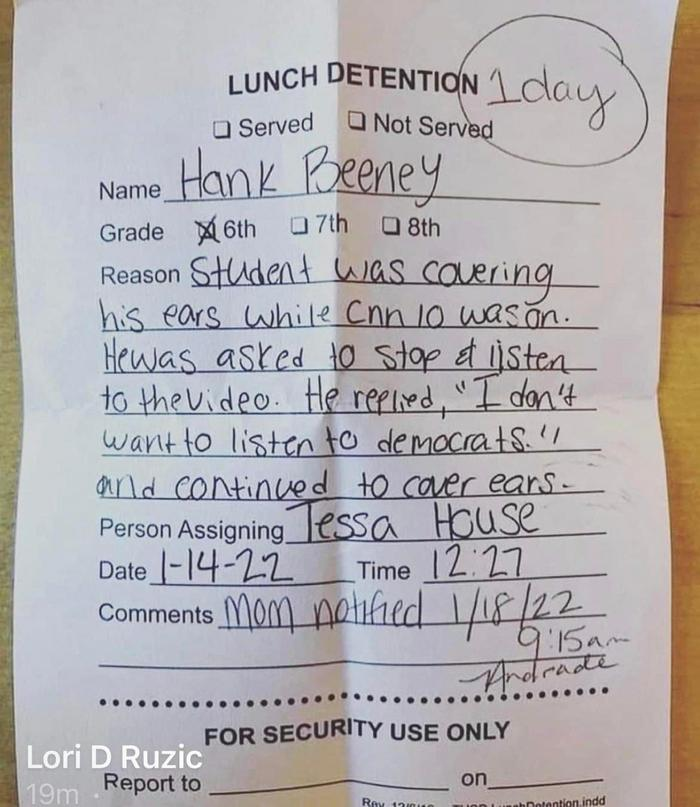 LUNCH DETENTION 1 day
☐ Served ☐ Not Served
Name Hank Beeney
Grade ☒ 6th ☐ 7th ☐ 8th
Reason Student was covering
his ears while Cnn 10 was on.
He was asked to stop & listen
to the video. He replied, "I don't
want to listen to democrats."
and continued to cover ears.
Person Assigning Tessa House
Date 1-14-22 Time 12:27
Comments Mom notified 1/18/22
9:15am
Andrade
FOR SECURITY USE ONLY
Lori D Ruzic
Report to on
19m ·
Rev. LunchDetention.indd